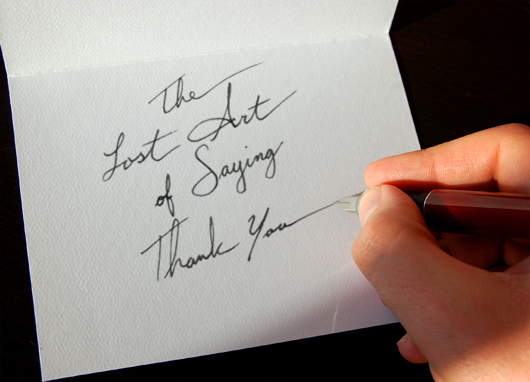 The
Lost Art
of Saying
Thank You